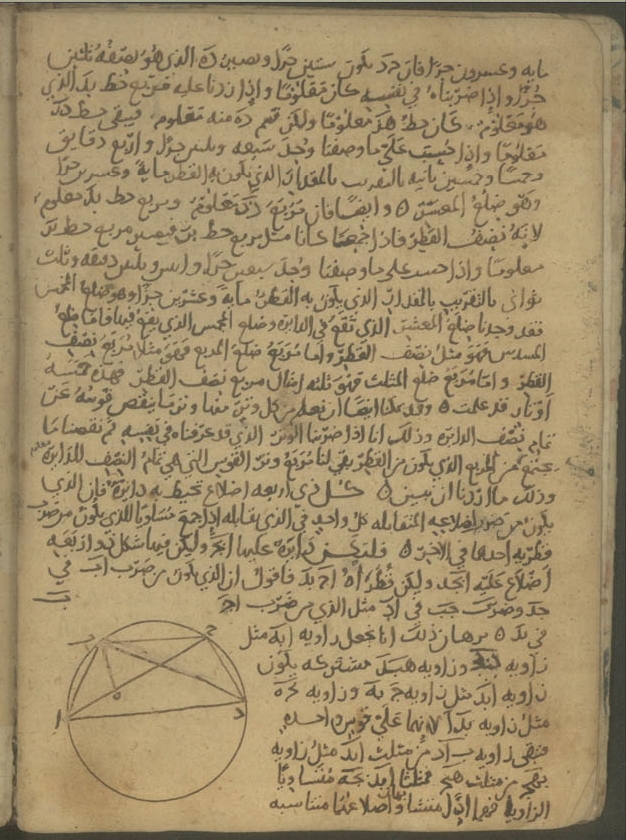 مايه وعشرون جزًا فان جزد يكون ستين جزًا ونصبين ده الذي هو نصفه ثلثين
جزًا واذا ضربناه في نفسه كان معلومًا واذا زدنا عليه مربع خط بد الذي
هو معلوم كان خط هد معلومًا ولكن قسم ده منه معلوم فيبقى خط
معلومًا واذا حسبت على ما وصفنا وجد سبعه وثلثين جزًا واربع دقايق
وخمسًا وخمسين ثانيه بالتقريب بالمقدار الذي يكون به القطر مايةً وعشرين جزًا
وهو ضلع المعشر ٥ وايضًا فان مربع معلوم ومربع خط بد معلوم
لانه نصف القطر فاذا جمعنا كانا مثل مربع خط بر فيصير مربع خط بر
معلومًا واذا حسب على ما وصفنا وجد سبعين جزًا واثنين وثلثين دقيقه وثلث
ثواني بالتقريب بالمقدار الذي يكون به القطر مايةً وعشرين جزًا وهو ضلع المخمس
فقد وجدنا ضلع المعشر الذي تقع في الدايره وضلع المخمس الذي يقع فيها فاما ضلع
المسدس فهو مثل نصف القطر واما مربع ضلع المربع فهو مثلا مربع نصف
القطر واما مربع ضلع المثلث فهو ثلثه امثال مربع نصف القطر فهذه خمسه
اوتار قد علمت ٥ وقد يمكننا ايضًا ان نعلم من كل وتر منها وترما ينقص قوسه عن
تمام نصف الدايره وذلك انا اذا ضربنا الوتر الذي قد عرفناه في نفسه ثم نقصنا ما
يجتمع من المربع الذي يكون من القطر بقي لنا مربع وتر القوس التي هي تمام النصف للدايره
وذلك ما اردنا ان نبين ٥ كل ذي اربعه اضلاع تحيط به دايره فان الذي
يكون من ضرب اضلاعه المتقابله كل واحد في الذي يقابله اذا جمع مساويا للذي يكون من ضرب
قطريه احدهما في الاخر ٥ فلتكن دايره عليها ابجد وليكن فيها شكل ذو اربعه
اضلاع عليه ابجد وليكن قطراه اج بد فاقول ان الذي يكون من ضرب اب في
جد وضرب جب في اد مثل الذي من ضرب اج
في بد ٥ برهان ذلك انا نجعل زاويه ابه مثل
زاويه وزاويه هبد مشتركه يكون
زاويه ابد مثل زاويه جبه وزاويه
مثل زاويه بدا لانهما على قوس واحده
فتبقى زاويه باد من مثلث ابد مثل زاويه
بهج من مثلث هبج فمثلثا ابد بجه متساويا
الزوايا فهما اذًا متشابهان واضلاعهما متناسبه
ب
ج
ه
ا
د